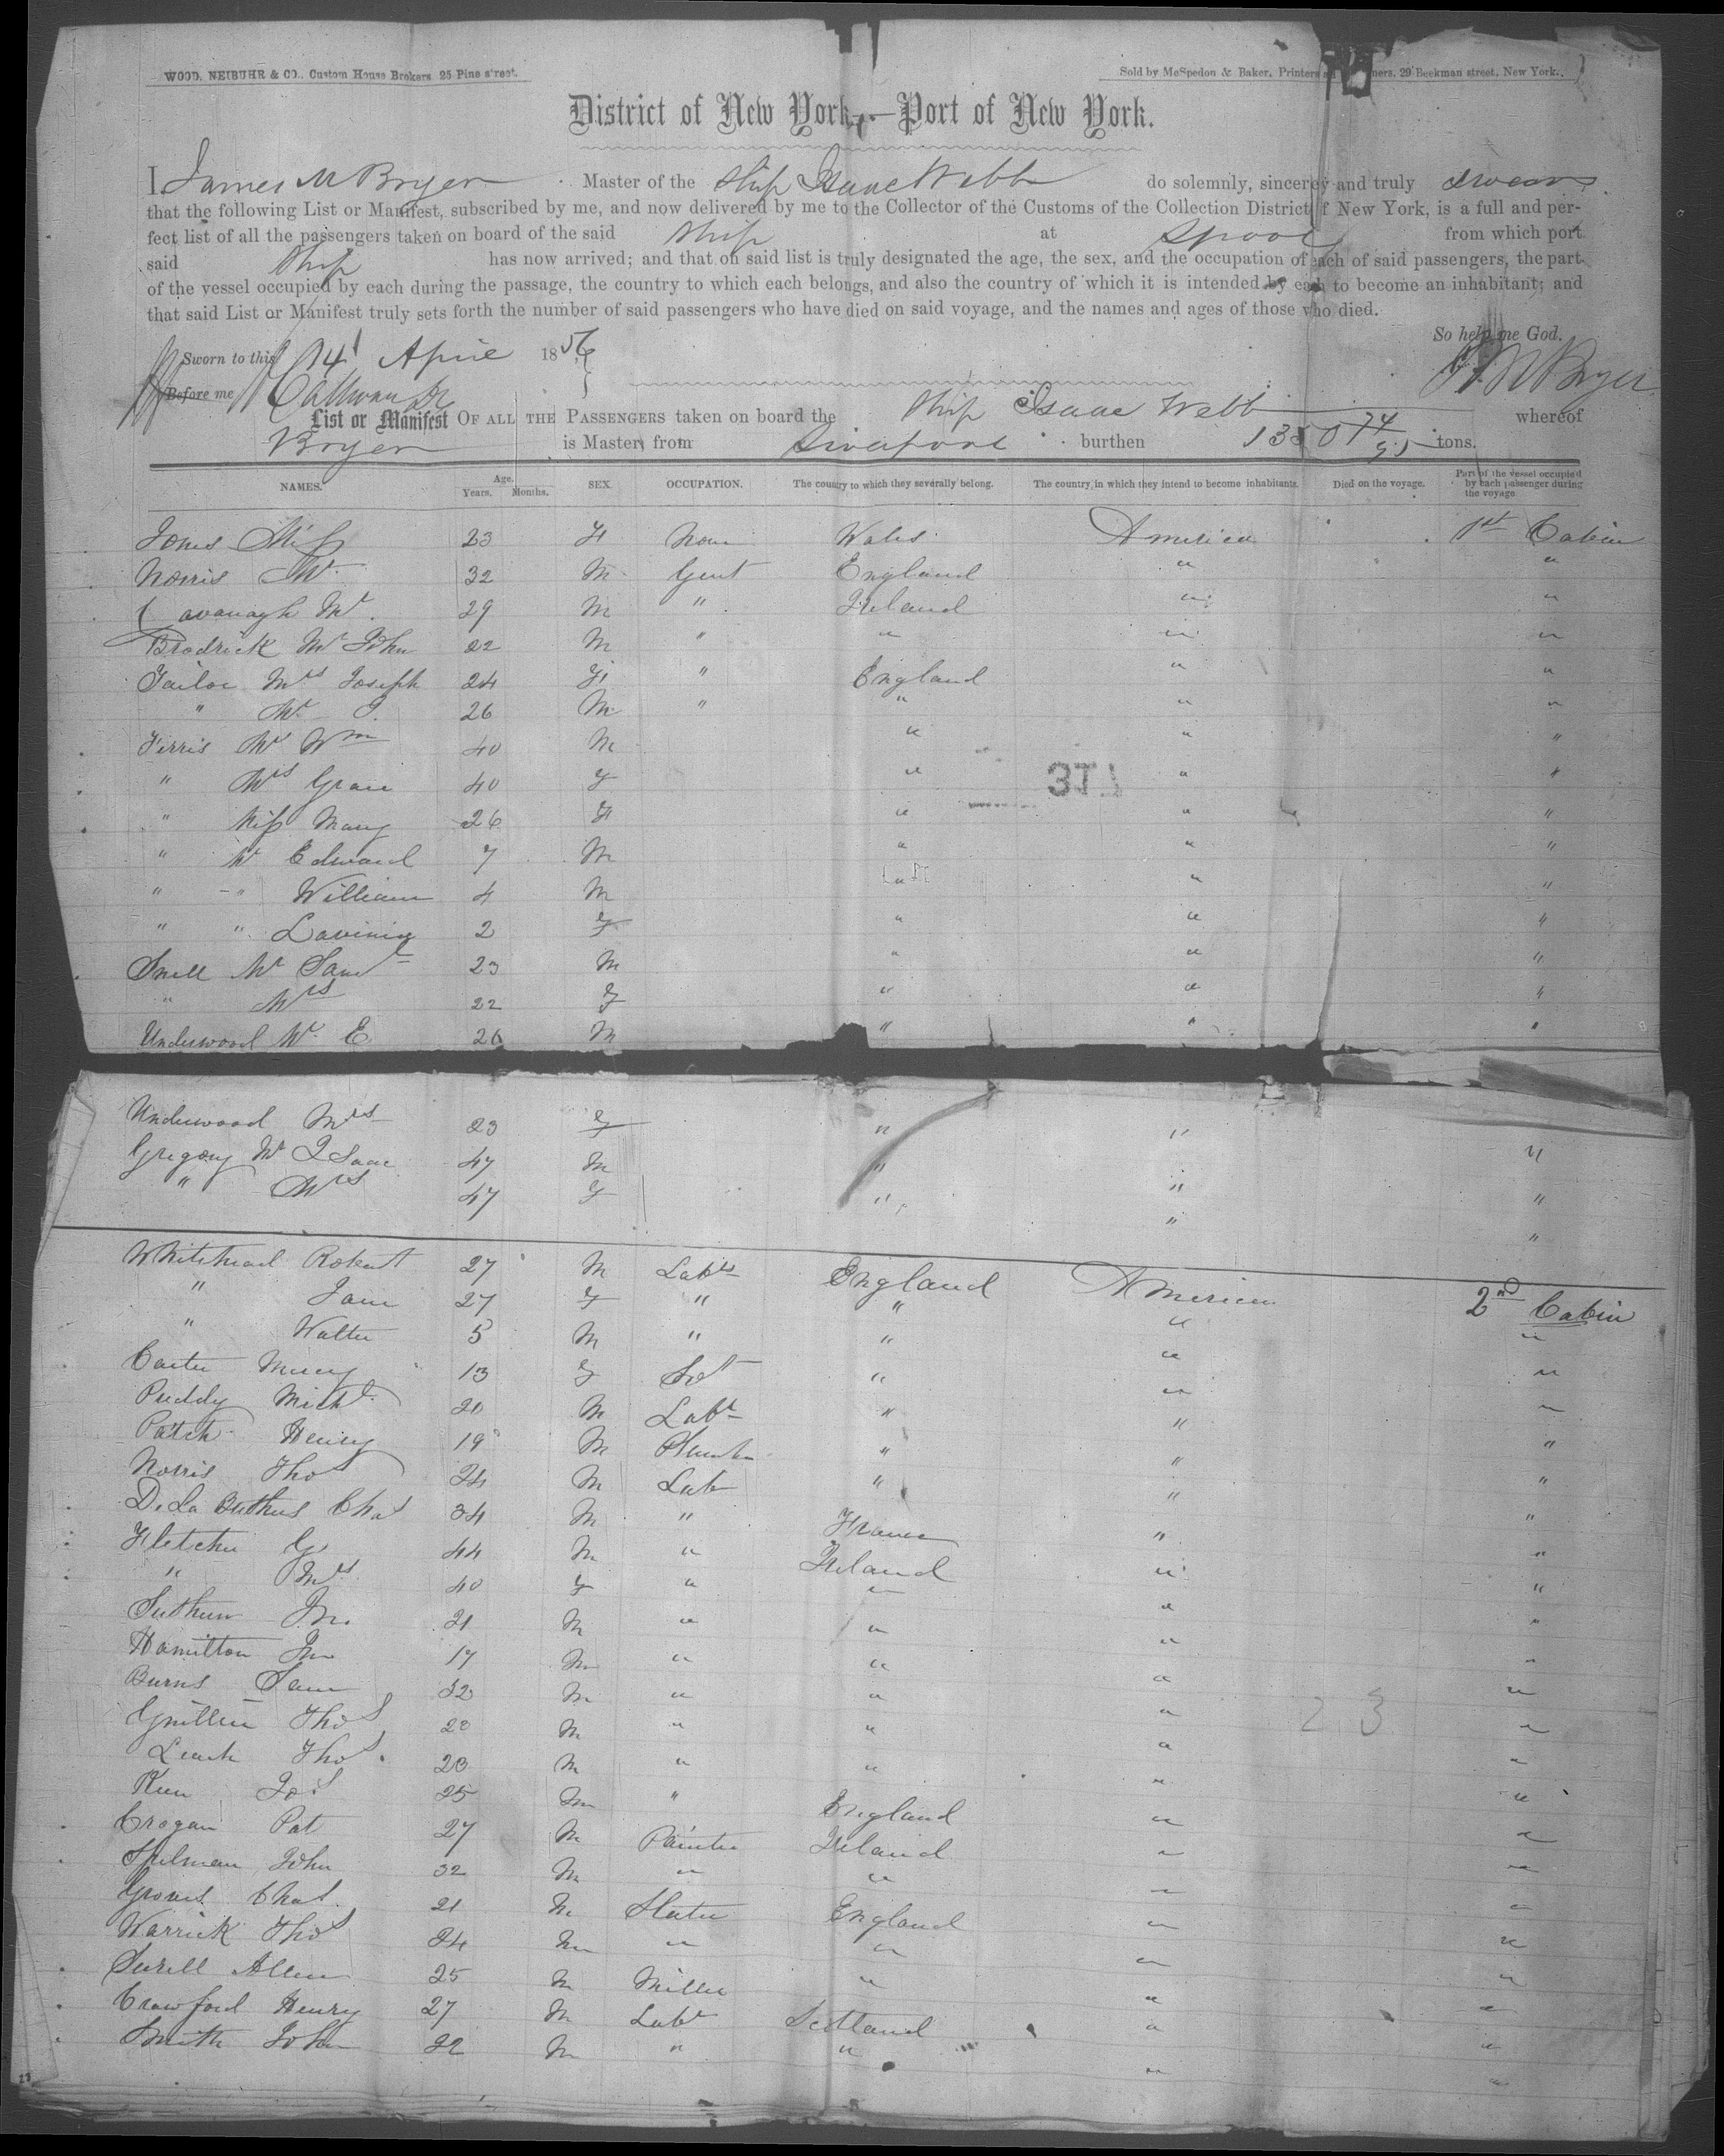 WOOD, NEIBUHR & CO., Custom House Brokers, 25 Pine street.
Sold by McSpedon & Baker, Printers ners, 29 Beekman street, New York.
District of New York,—Port of New York.
I, James M Bryer Master of the Ship Isaac Webb do solemnly, sincerely and truly swear
that the following List or Manifest, subscribed by me, and now delivered by me to the Collector of the Customs of the Collection District of New York, is a full and per-
fect list of all the passengers taken on board of the said Ship at Lpool from which port
said Ship has now arrived; and that on said list is truly designated the age, the sex, and the occupation of each of said passengers, the part
of the vessel occupied by each during the passage, the country to which each belongs, and also the country of which it is intended by each to become an inhabitant; and
that said List or Manifest truly sets forth the number of said passengers who have died on said voyage, and the names and ages of those who died.
So help me God.
Sworn to this 14 April 185
Before me
J M Bryer
List or Manifest OF ALL THE PASSENGERS taken on board the Ship Isaac Webb whereof
Bryer is Master, from Liverpool burthen 1350 74/95 tons.
NAMES. Age. Years. Months. SEX. OCCUPATION. The country to which they severally belong. The country in which they intend to become inhabitants. Died on the voyage. Part of the vessel occupied by each passenger during the voyage
Jones Miss 23 F None Wales America 1st Cabin
Norris Mr 32 M Gent England " "
Cavanagh Mr 29 M " Ireland " "
Brodrick Mr John 22 M " " " "
Tailor Mrs Joseph 24 F " England " "
" Mr J. 26 M " " " "
Ferris Mr Wm 40 M " " "
" Mrs Grace 40 F " " "
" Miss Mary 26 F " " "
" Mr Edward 7 M " " "
" " William 4 M " " "
" " Lavinia 2 F " " "
Snell Mr Saml 23 M " " "
" Mrs 22 F " " "
Underwood Mr E 26 M " " "
Underwood Mrs 23 F " " "
Gregory Mr Isaac 47 M " " "
" Mrs 47 F " " "
Whitehead Robert 27 M Labr England America 2nd Cabin
" Jane 27 F " " " "
" Walter 5 M " " " "
Carter Mercy 13 F " " "
Puddy Michl 20 M Labr " " "
Patch Henry 19 M Plumber " " "
Norris Thos 24 M Labr " " "
De La Chas 34 M " France " "
Fletcher G 44 M " Ireland " "
" Mrs 40 F " " " "
Jno 21 M " " " "
Hamilton Jno 17 M " " " "
Burns Sam 32 M " " " "
Thos 20 M " " " "
Leach Thos 20 M " " " "
Jos 25 M " England " "
Crogan Pat 27 M Painter Ireland " "
Spilman John 32 M " " " "
Groves Chas 21 M Slater England " "
Warrick Thos 24 M " " " "
Allen 25 M Miller " " "
Crawford Henry 27 M Labr Scotland " "
Smith John 22 M " " " "